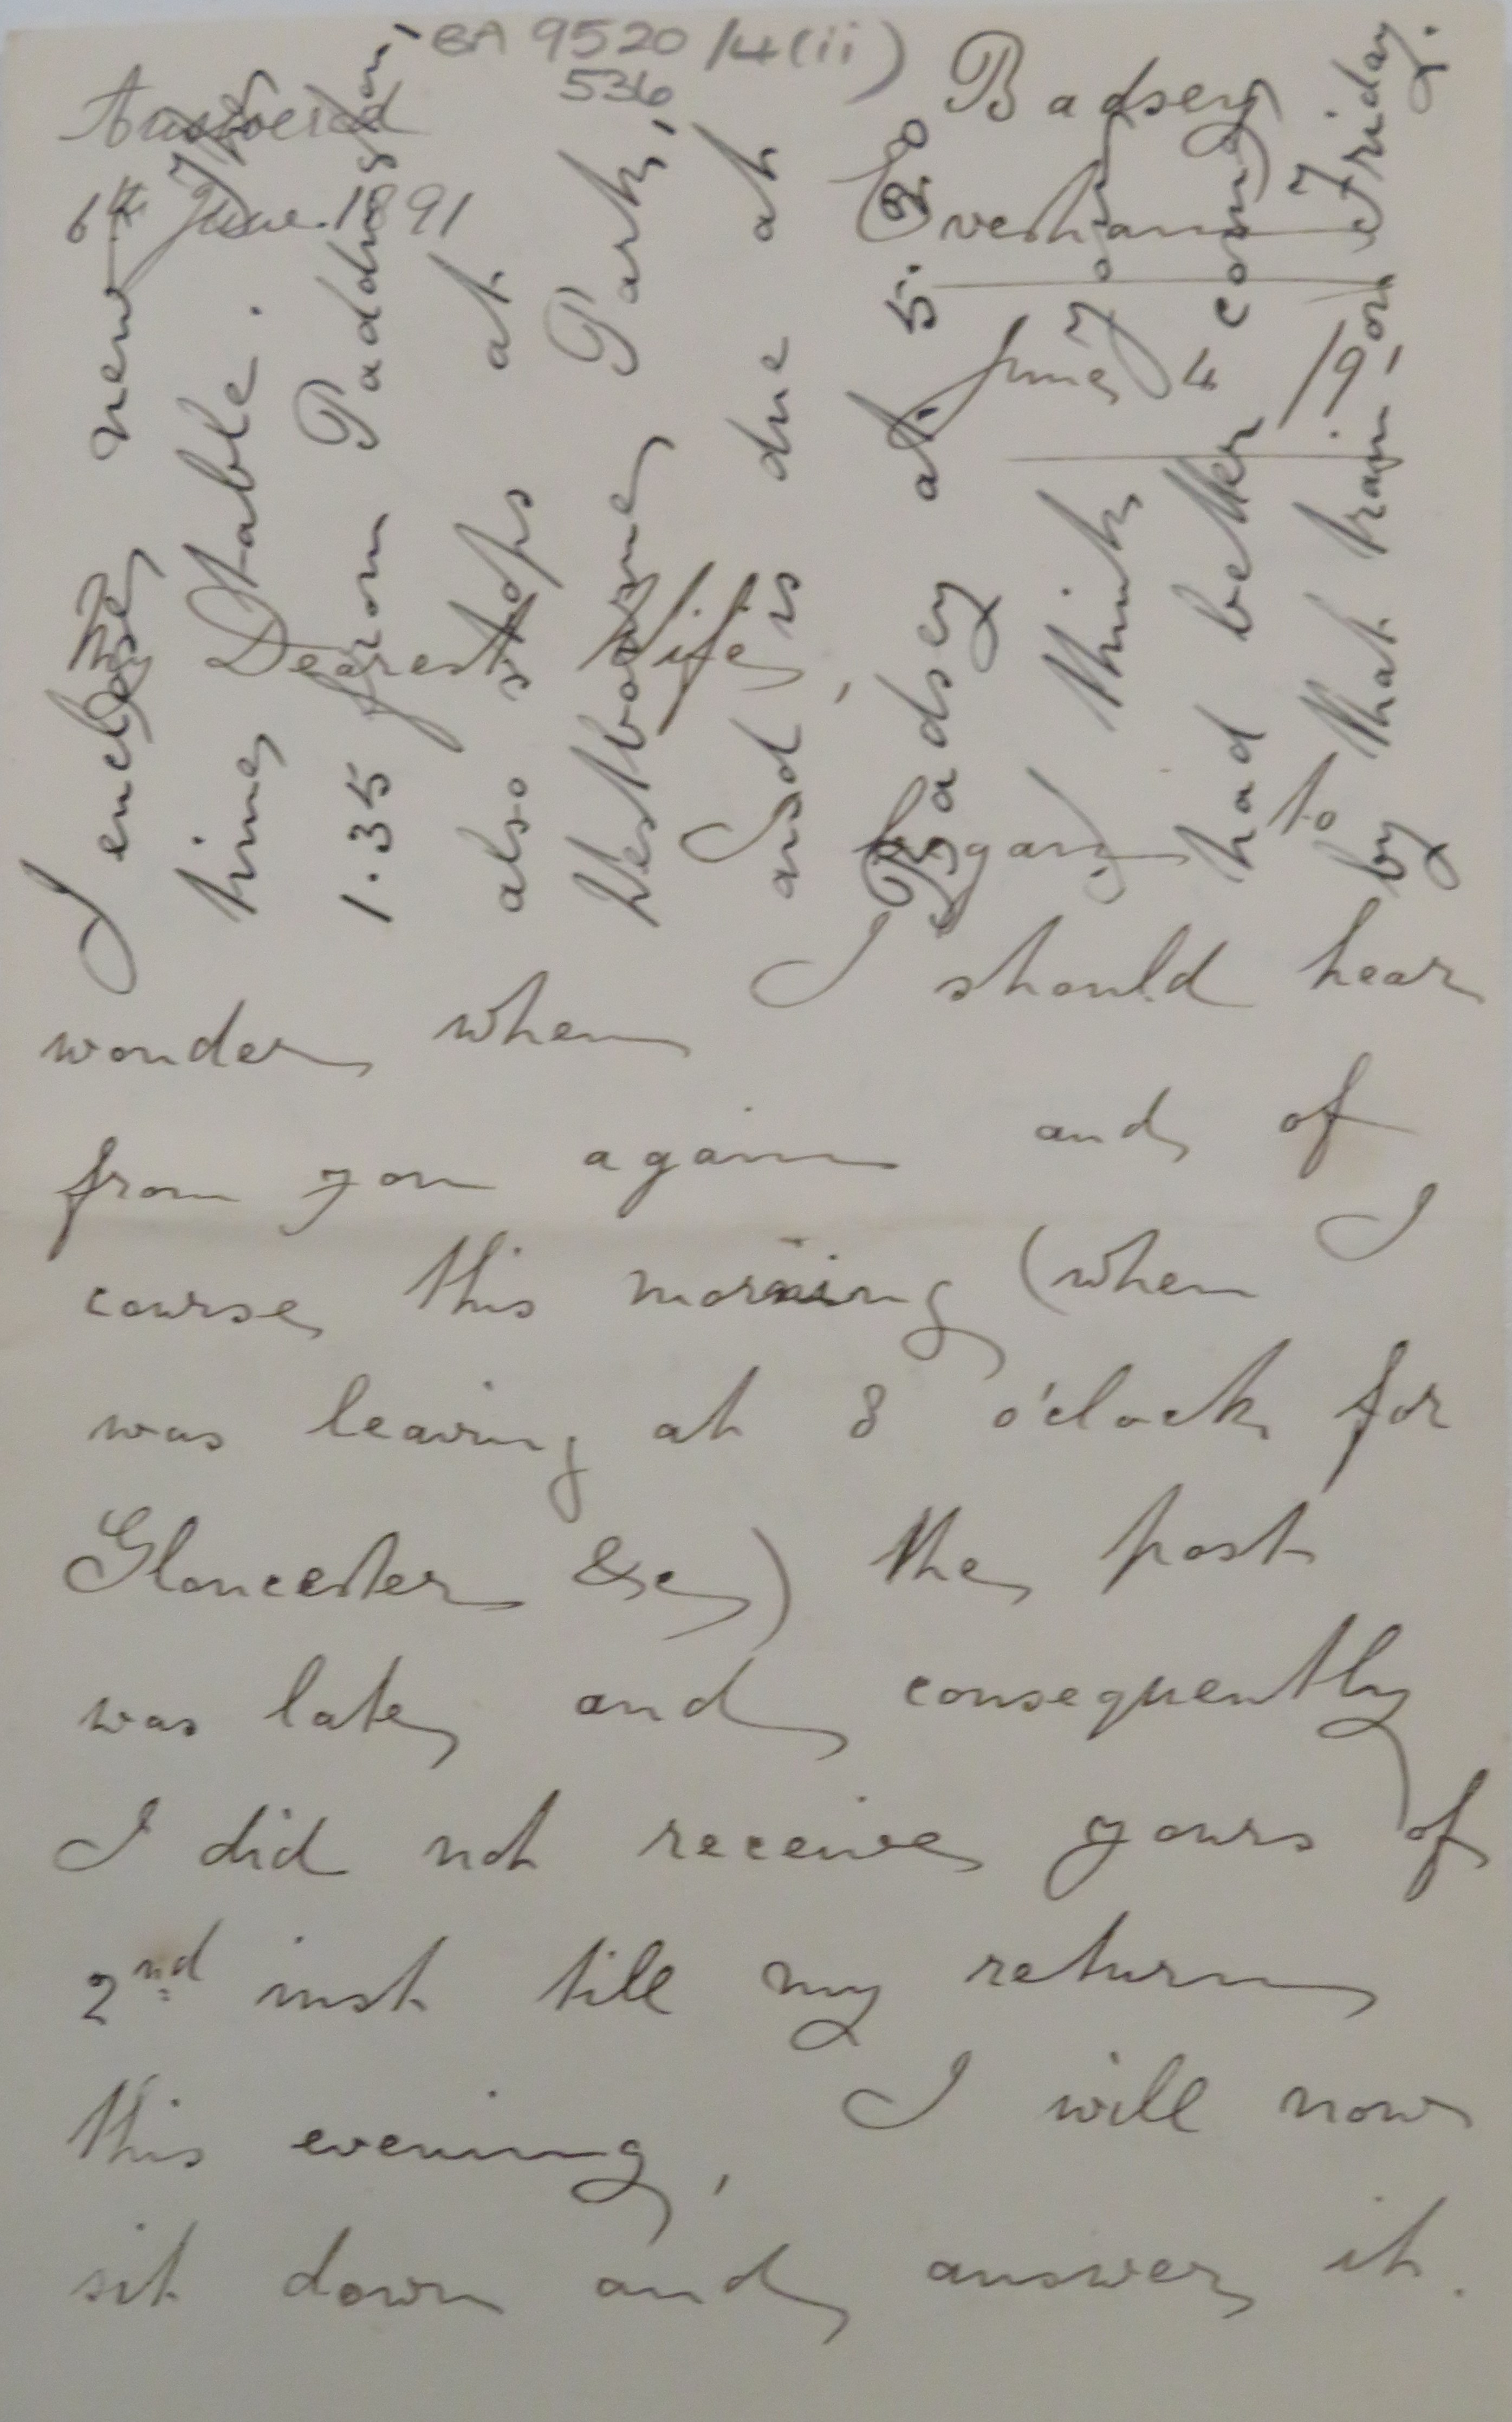 BA 9520/4(ii)
536
Answered
6th June 1891
Badsey
Evesham
June 4 /91
My Dearest Wife,
I began to
wonder when I should hear
from you again and of
course this morning (when I
was leaving at 8 o'clock for
Gloucester &c) the post
was late and consequently
I did not receive yours of
2nd inst till my return
this evening, I will now
sit down and answer it.
I enclose new
time Table. The
1.35 from Paddington,
also stops at
Westbourne Park,
and is due at
Badsey at 5.
I think you
had better come
by that train on Friday.